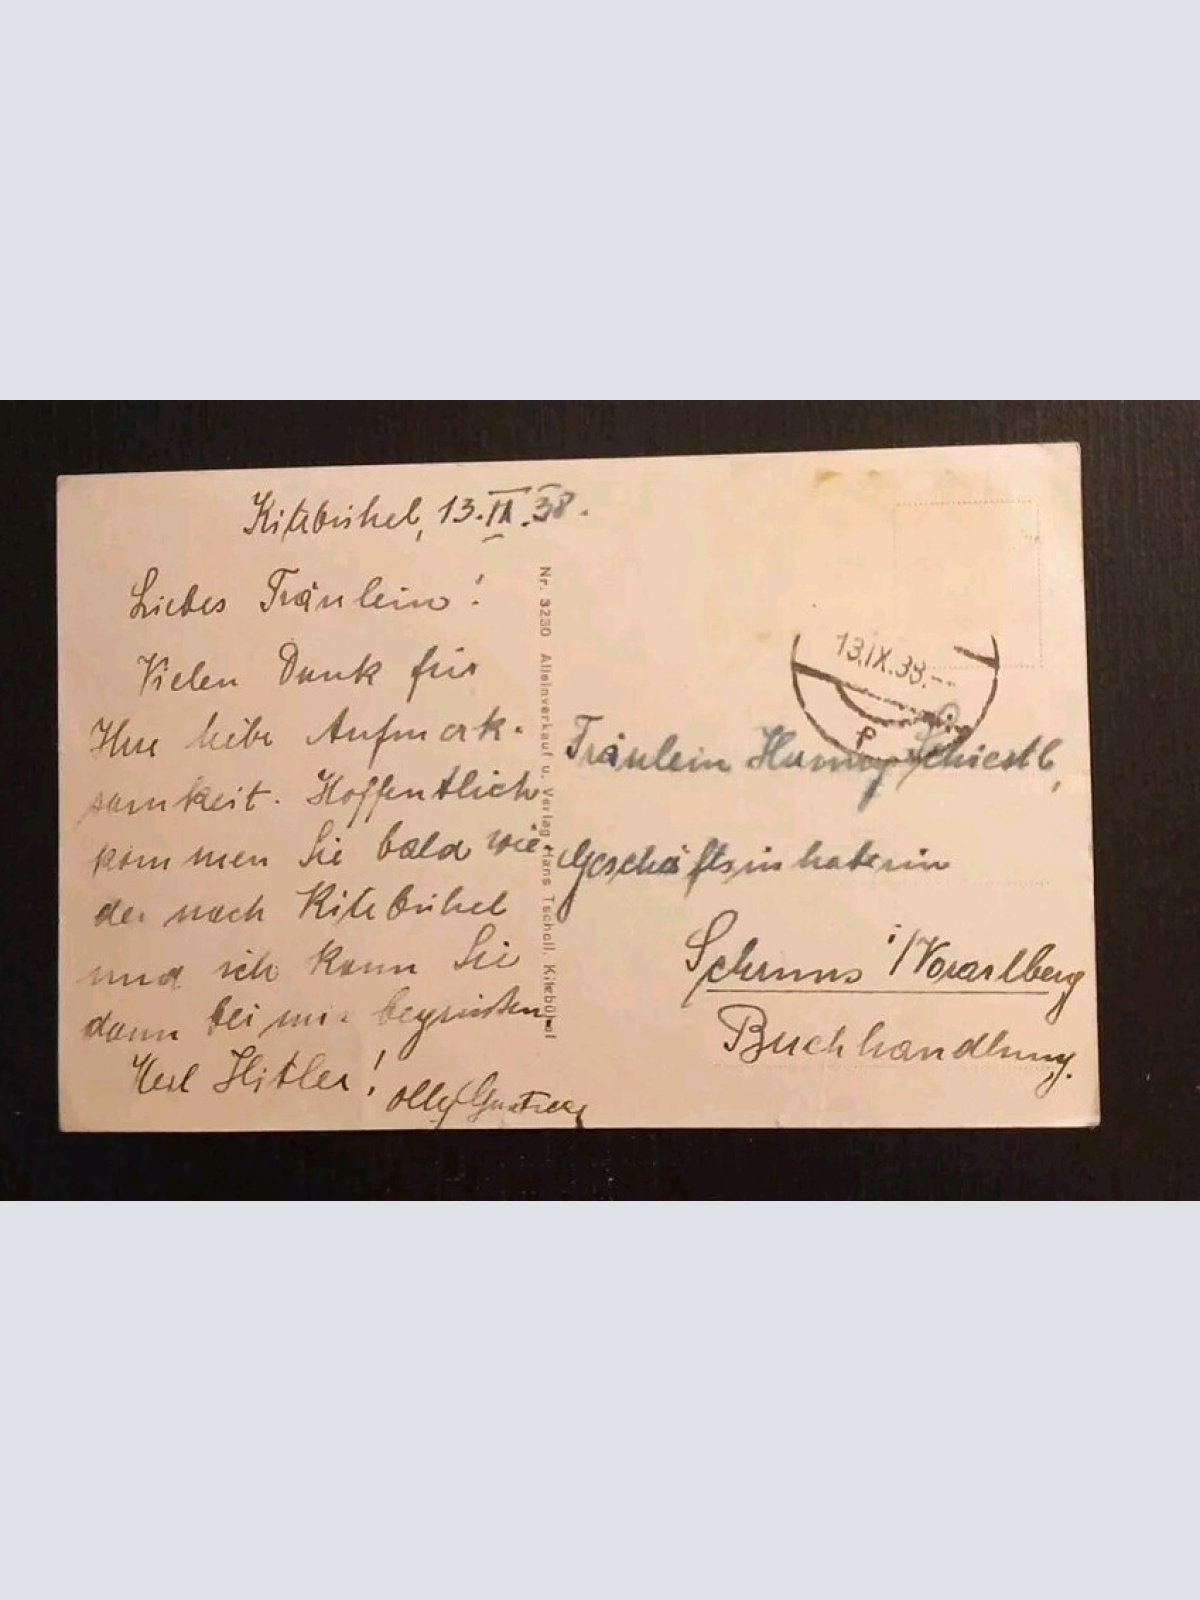 Kitzbühel, 13.IX.38.
Liebes Fräulein!
Vielen Dank für
Ihre liebe Aufmerk-
samkeit. Hoffentlich
kommen Sie bald wie-
der nach Kitzbühel
und ich kann Sie
dann bei mir begrüßen
Heil Hitler!
Olly
Nr. 3230 Alleinverkauf u. Verlag Hans Tscholl, Kitzbühel
13.IX.38.--
Fräulein Hanny Schiestl,
Geschäftsinhaberin
Schruns i/Vorarlberg
Buchhandlung.